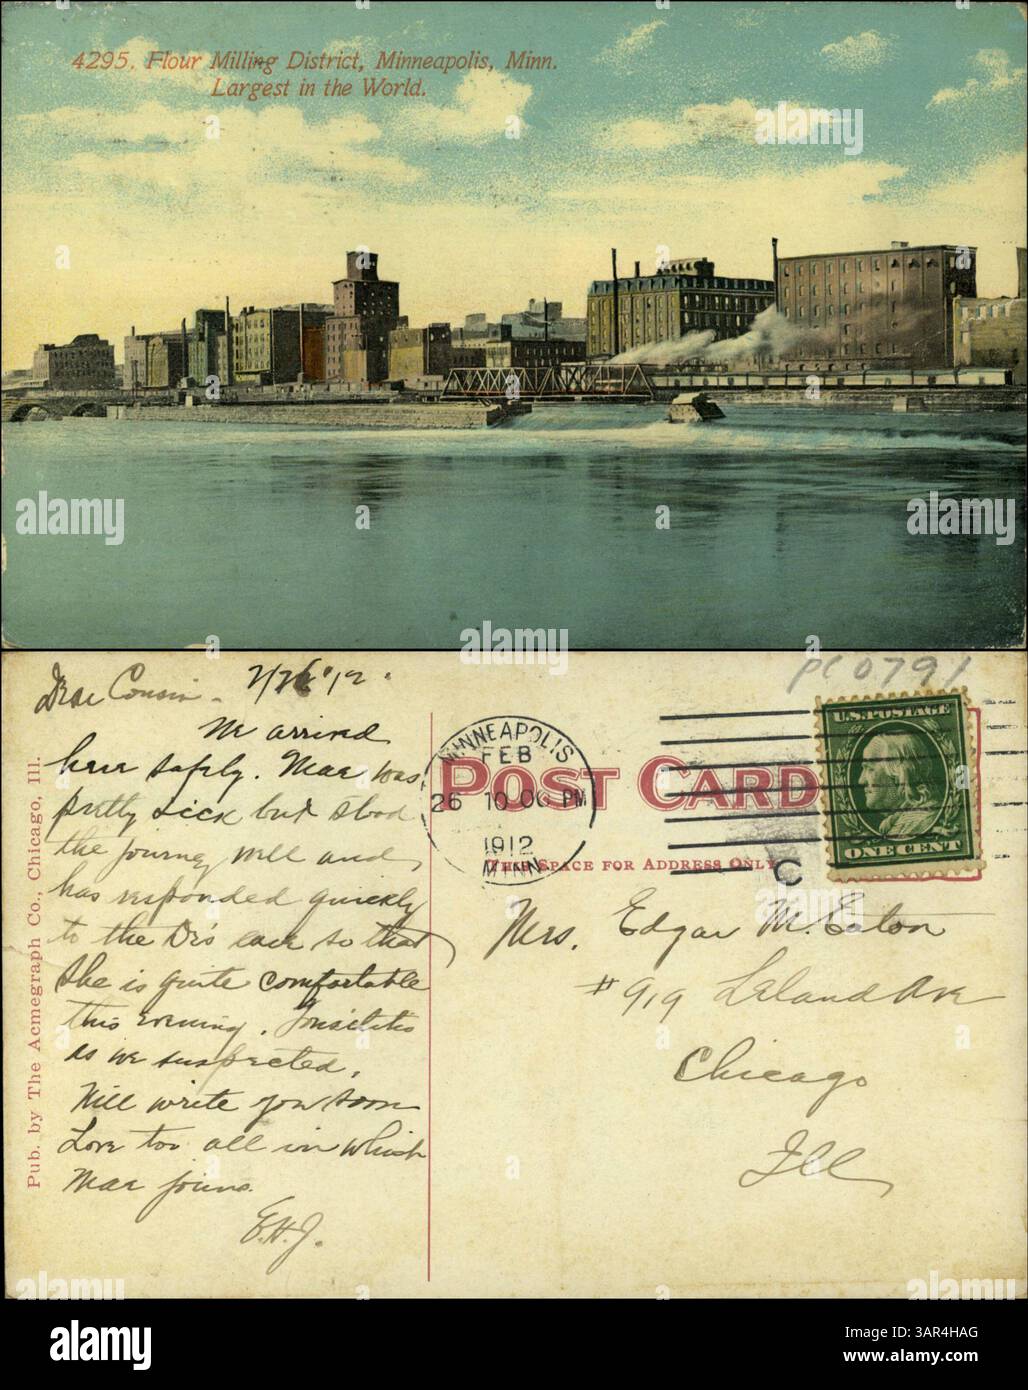 4295. Flour Milling District, Minneapolis, Minn.
Largest in the World.
Dear Cousin - 2/26/12.
We arrived
here safely. Mae was
pretty sick but stood
the journey well and
has responded quickly
to the Dr's care so that
she is quite comfortable
this evening. Tonsilitis
as we suspected.
Will write you soon
Love to all in which
Mae joins.
E.H.J.
Pub. by The Acmegraph Co., Chicago, Ill.
PC 0791
MINNEAPOLIS
FEB
26 10 00 PM
1912
MINN.
POST CARD
THIS SPACE FOR ADDRESS ONLY
C
U.S. POSTAGE
ONE CENT
Mrs. Edgar M. Eaton
#919 Leland Ave
Chicago
Ill
alamy
alamy
Image ID: 3AR4HAG
www.alamy.com